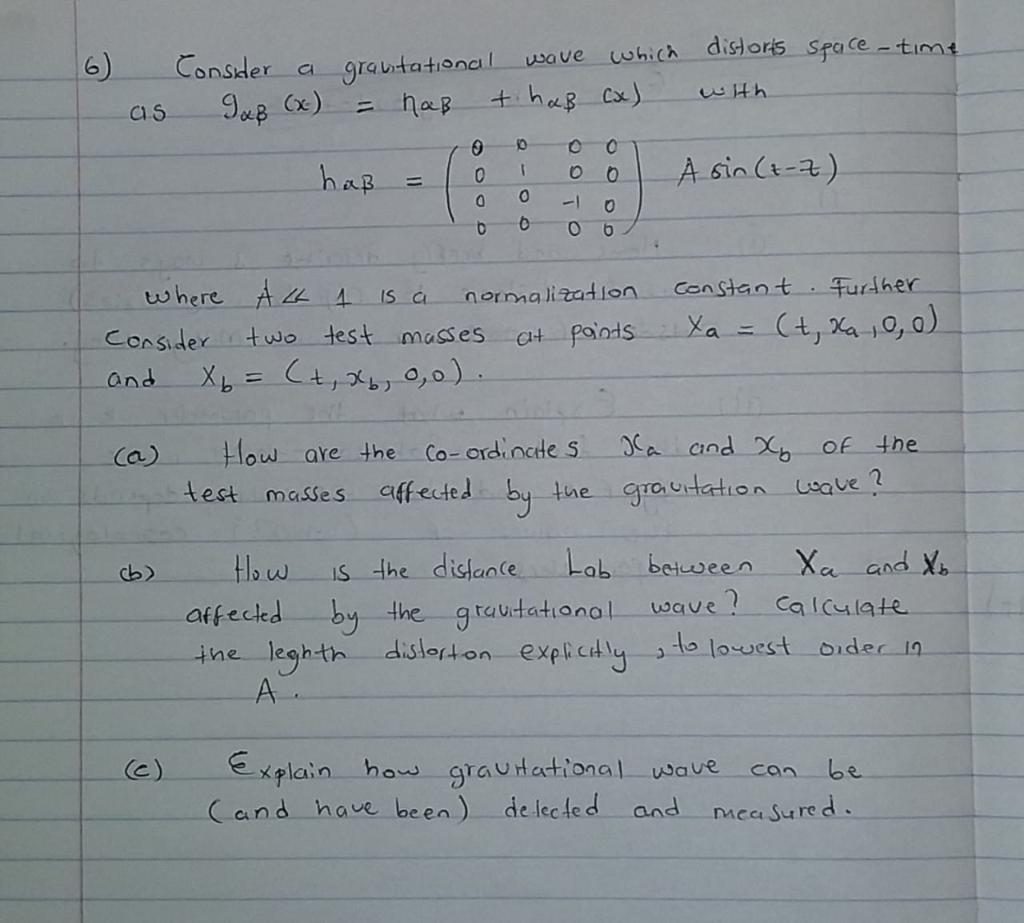 6) Consider a gravitational wave which distorts space-time
as gαβ (x) = ηαβ + hαβ (x) with
hαβ = ( 0 0 0 0
0 1 0 0
0 0 -1 0
0 0 0 0 ) A sin(t-z)
where A << 1 is a normalization constant. Further
Consider two test masses at points Xa = (t, xa, 0, 0)
and Xb = (t, xb, 0, 0).
(a) How are the co-ordinates xa and xb of the
test masses affected by the gravitation wave?
(b) How is the distance Lab between Xa and Xb
affected by the gravitational wave? Calculate
the leghth distorton explicitly, to lowest order in
A.
(c) Explain how gravitational wave can be
(and have been) detected and measured.